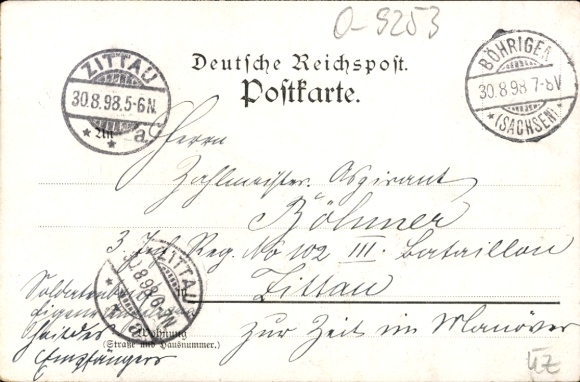 O-9253
Deutsche Reichspost.
Postkarte.
ZITTAU
30.8.98.5-6N.
* * a.
BÖHRIGEN
30.8.98 7-8V
*(SACHSEN)*
An
Herrn
Zahlmeister Aspirant
Böhmer
3. Inf. Reg. No 102 III. Bataillon
Zittau
zur Zeit im Manöver
ZITTAU
30.8.98.
Soldatenbrief
Eigene Angelegenheit des
Empfängers
Wohnung
(Straße und Hausnummer.)